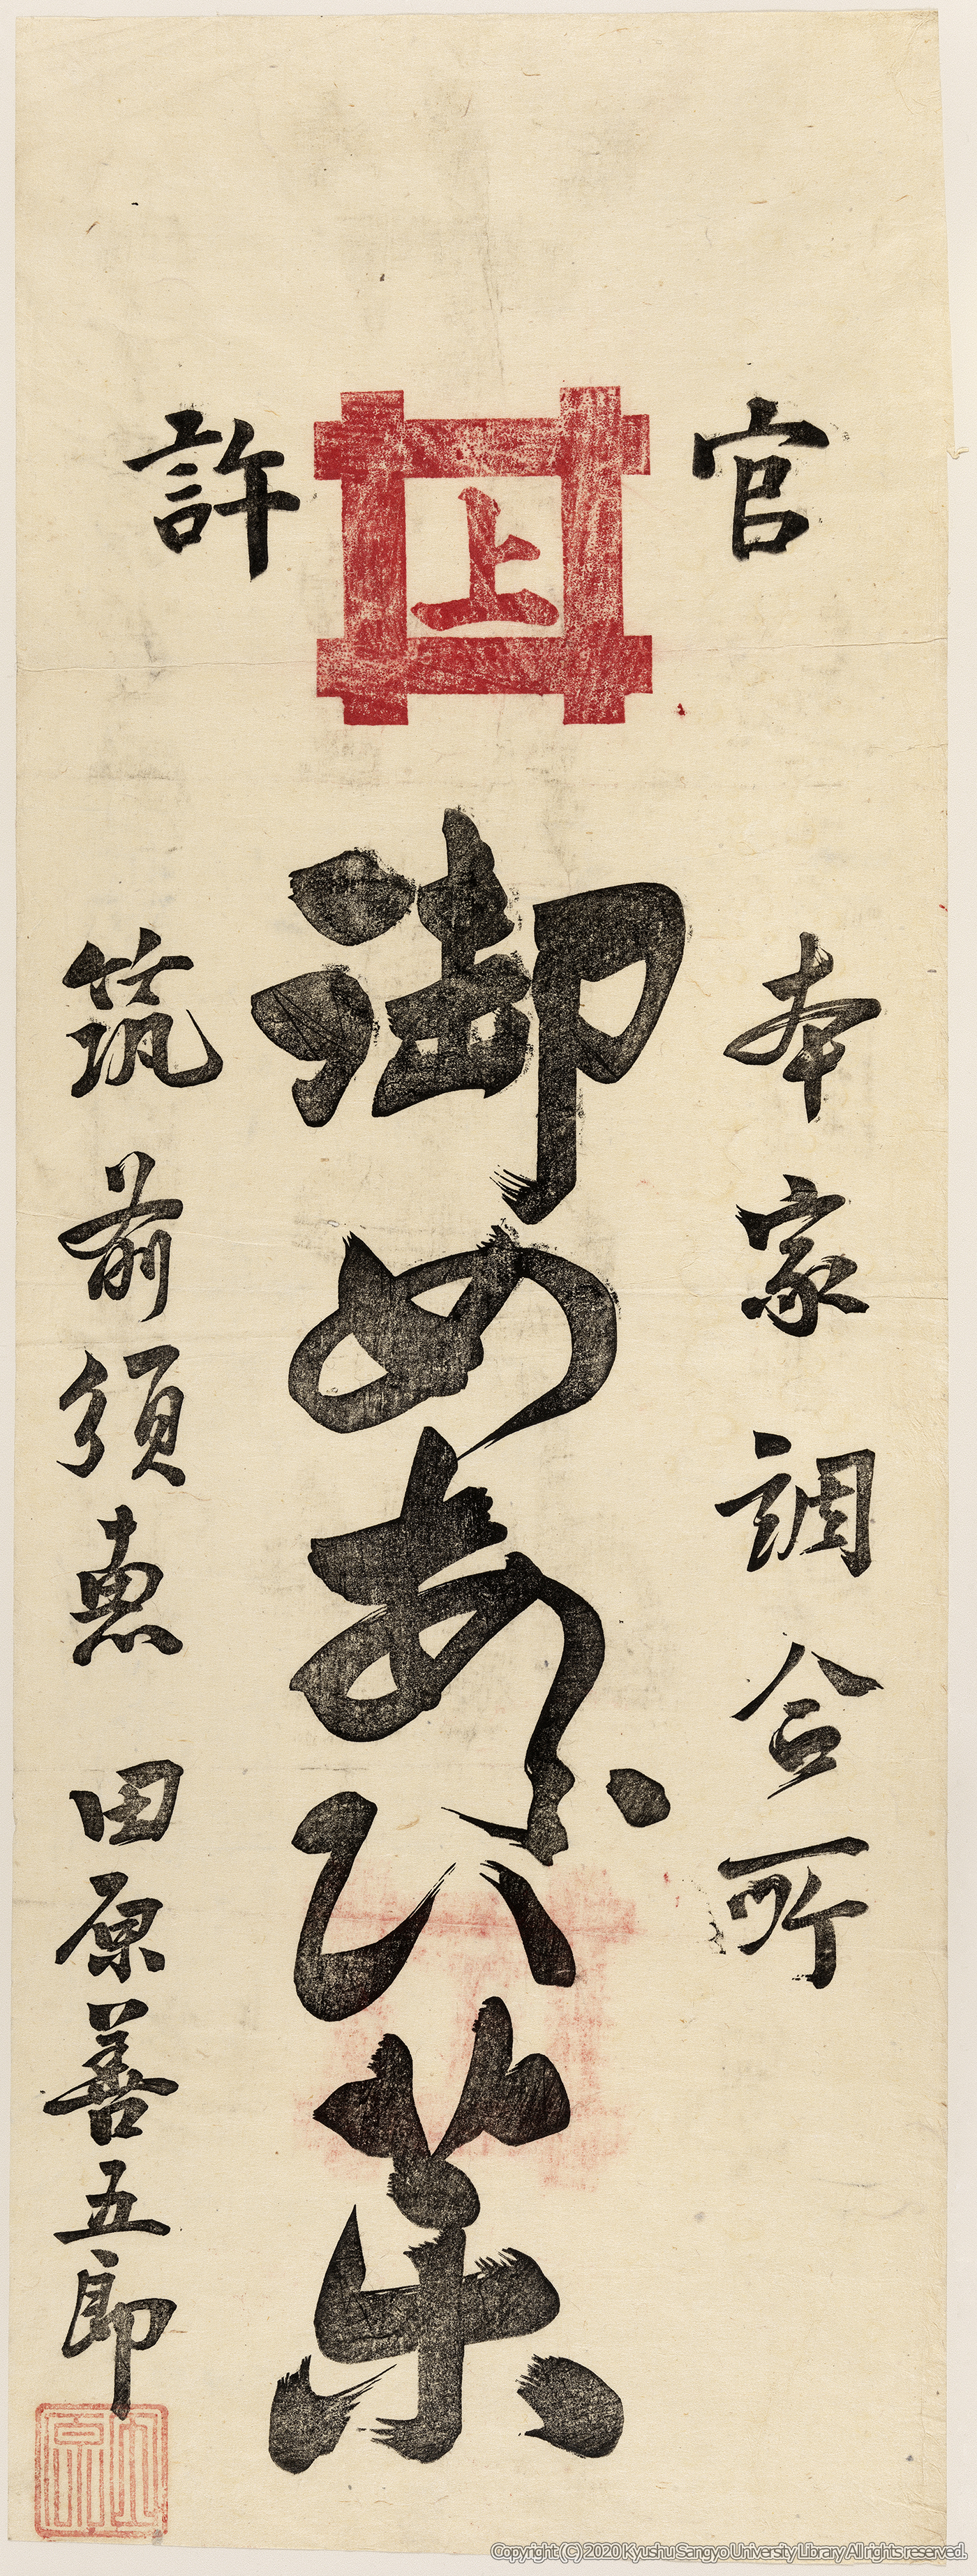 官許
上
本家調合所
御めあらひ薬
筑前須恵 田原善五郎
Copyright (C) 2020 Kyushu Sangyo University Library All rights reserved.